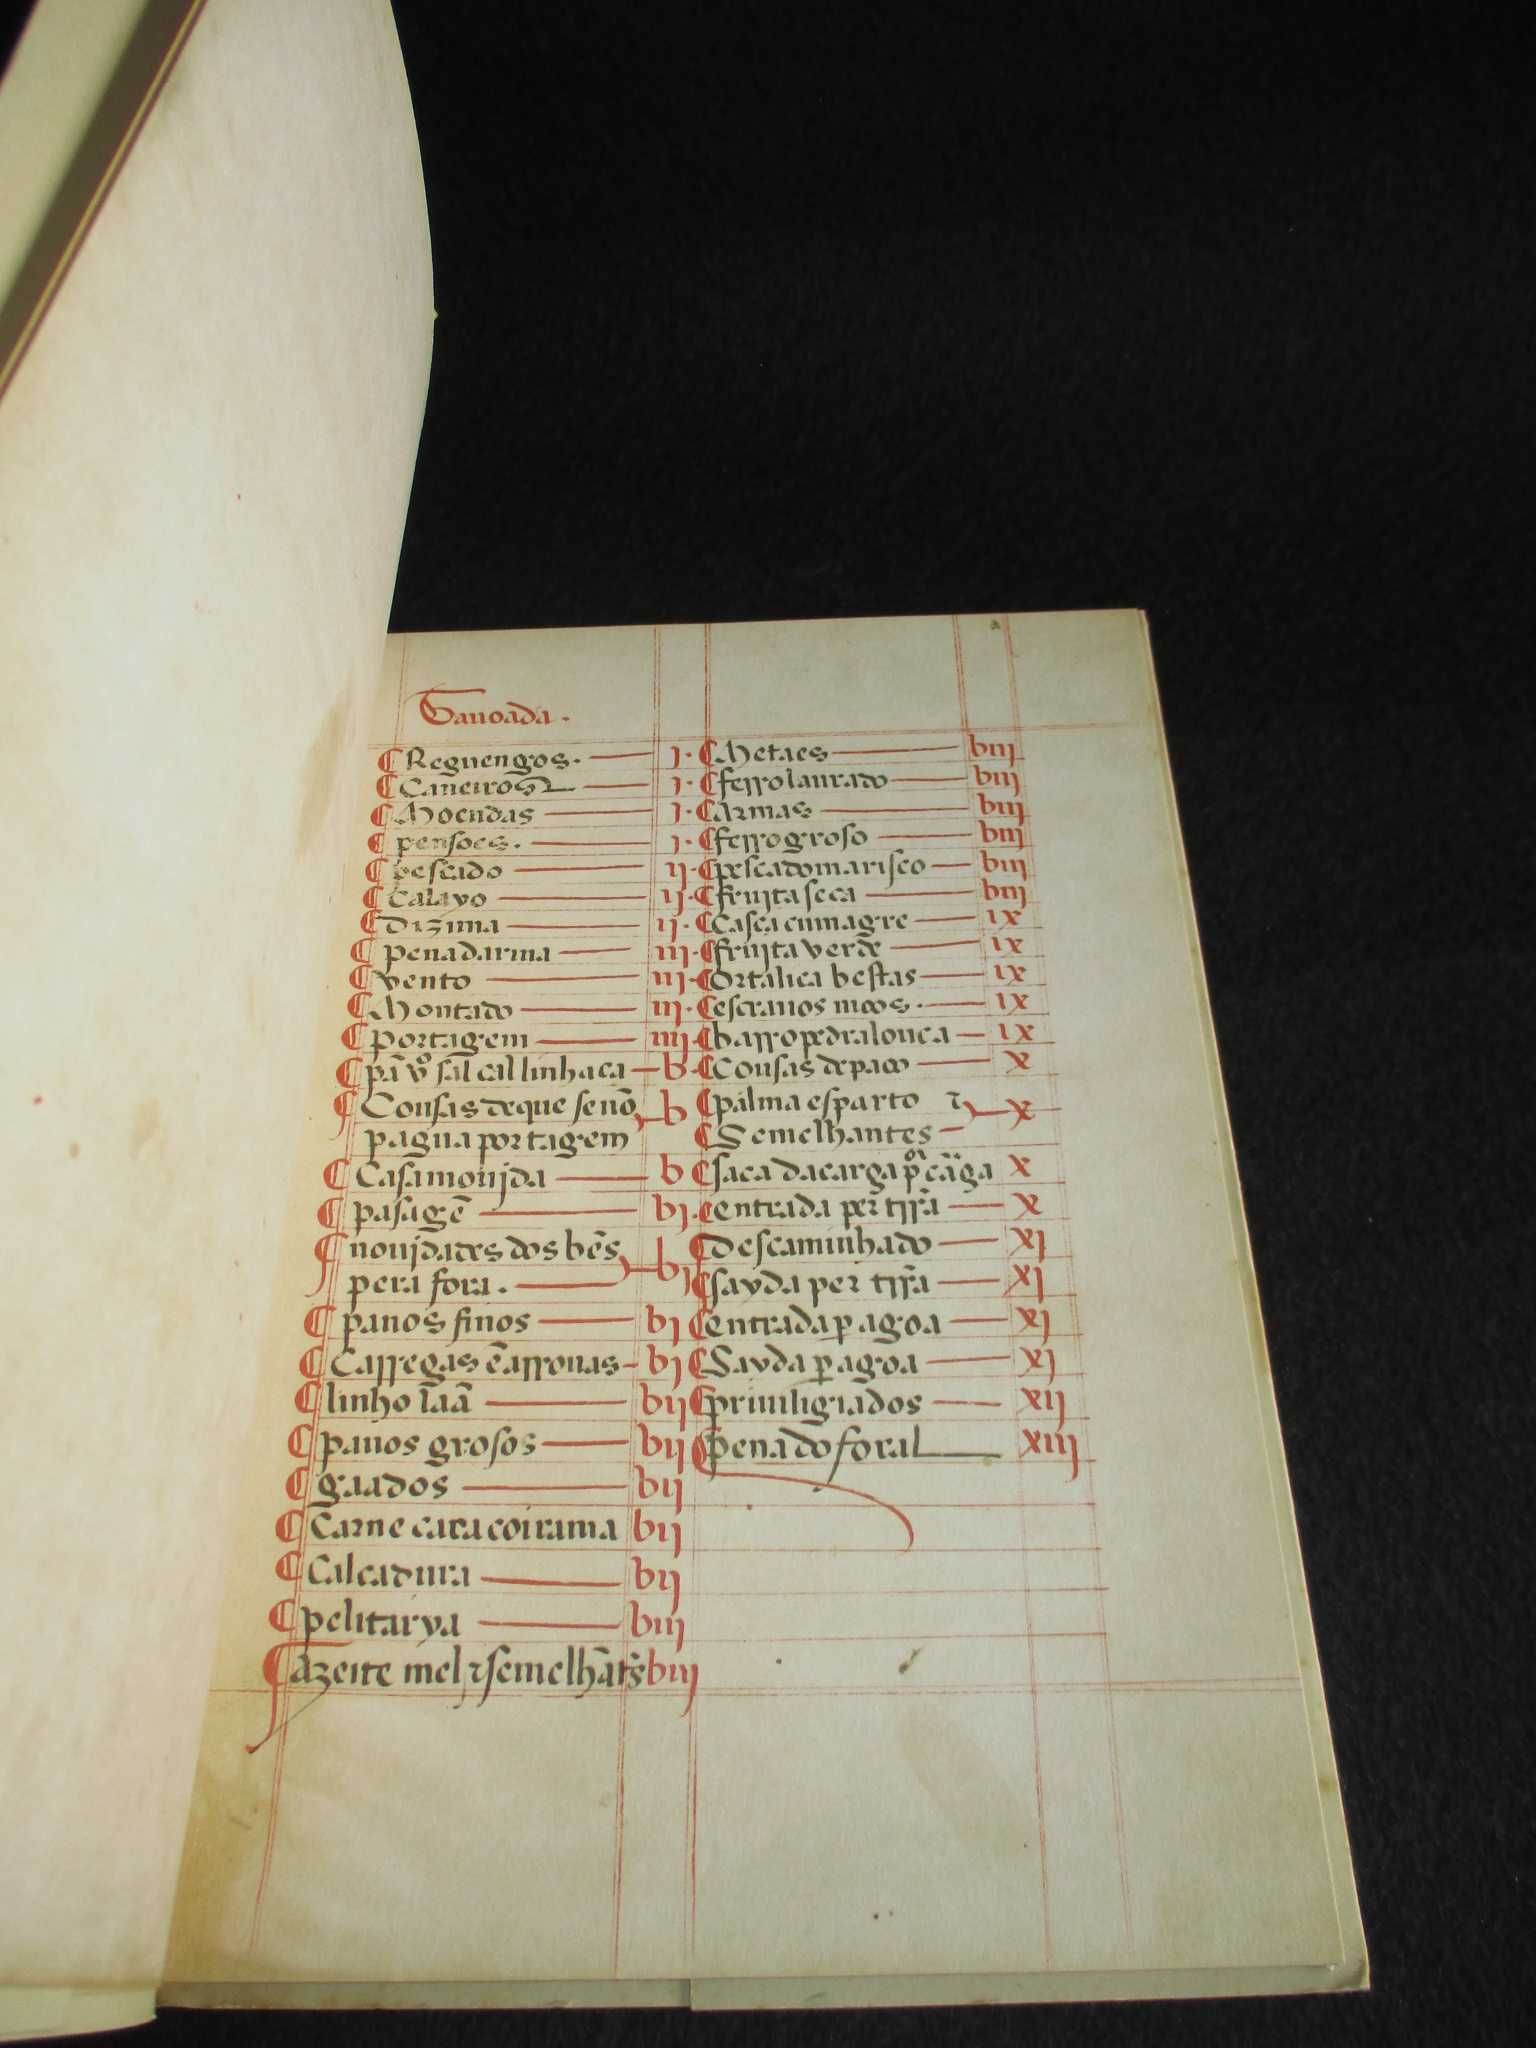 Tauoada.
Reguengos. j.
Caneiros j.
Moendas j.
pensoes. j.
pescado ij.
Calayo ij.
Dizima ij.
penadarma iij.
vento iij.
Montado iij.
Portagem iiij.
pã vº sal cal linhaca b.
Cousas deque senõ b
pagua portagem
Casamoujda b
pasagẽ bj.
noujdades dos bẽs bj
pera fora.
panos finos bj
Carregas ẽ arrouas bj
linho lãã bij
panos grosos bij
gaados bij
Carne caca coirama bij
Calcadura bij
pelitarya biij
Azeite mel ⁊ semelhãts biij
Metaes biij
ferrolaurado biij
Armas biij
ferrogroso biij
pescadomarisco biij
fruitaseca biij
Casca cumagre ix
fruita verde ix
Ortalica bestas ix
escrauos moos. ix
barropedralouca ix
Cousas depaao x
palma esparto ⁊ x
Semelhantes
saca dacarga p cãga x
entrada per trra x
Descaminhado xj
sayda per trra xj
entrada p agoa xj
Sayda p agoa xj
priuiligiados xij
pena do foral xiij